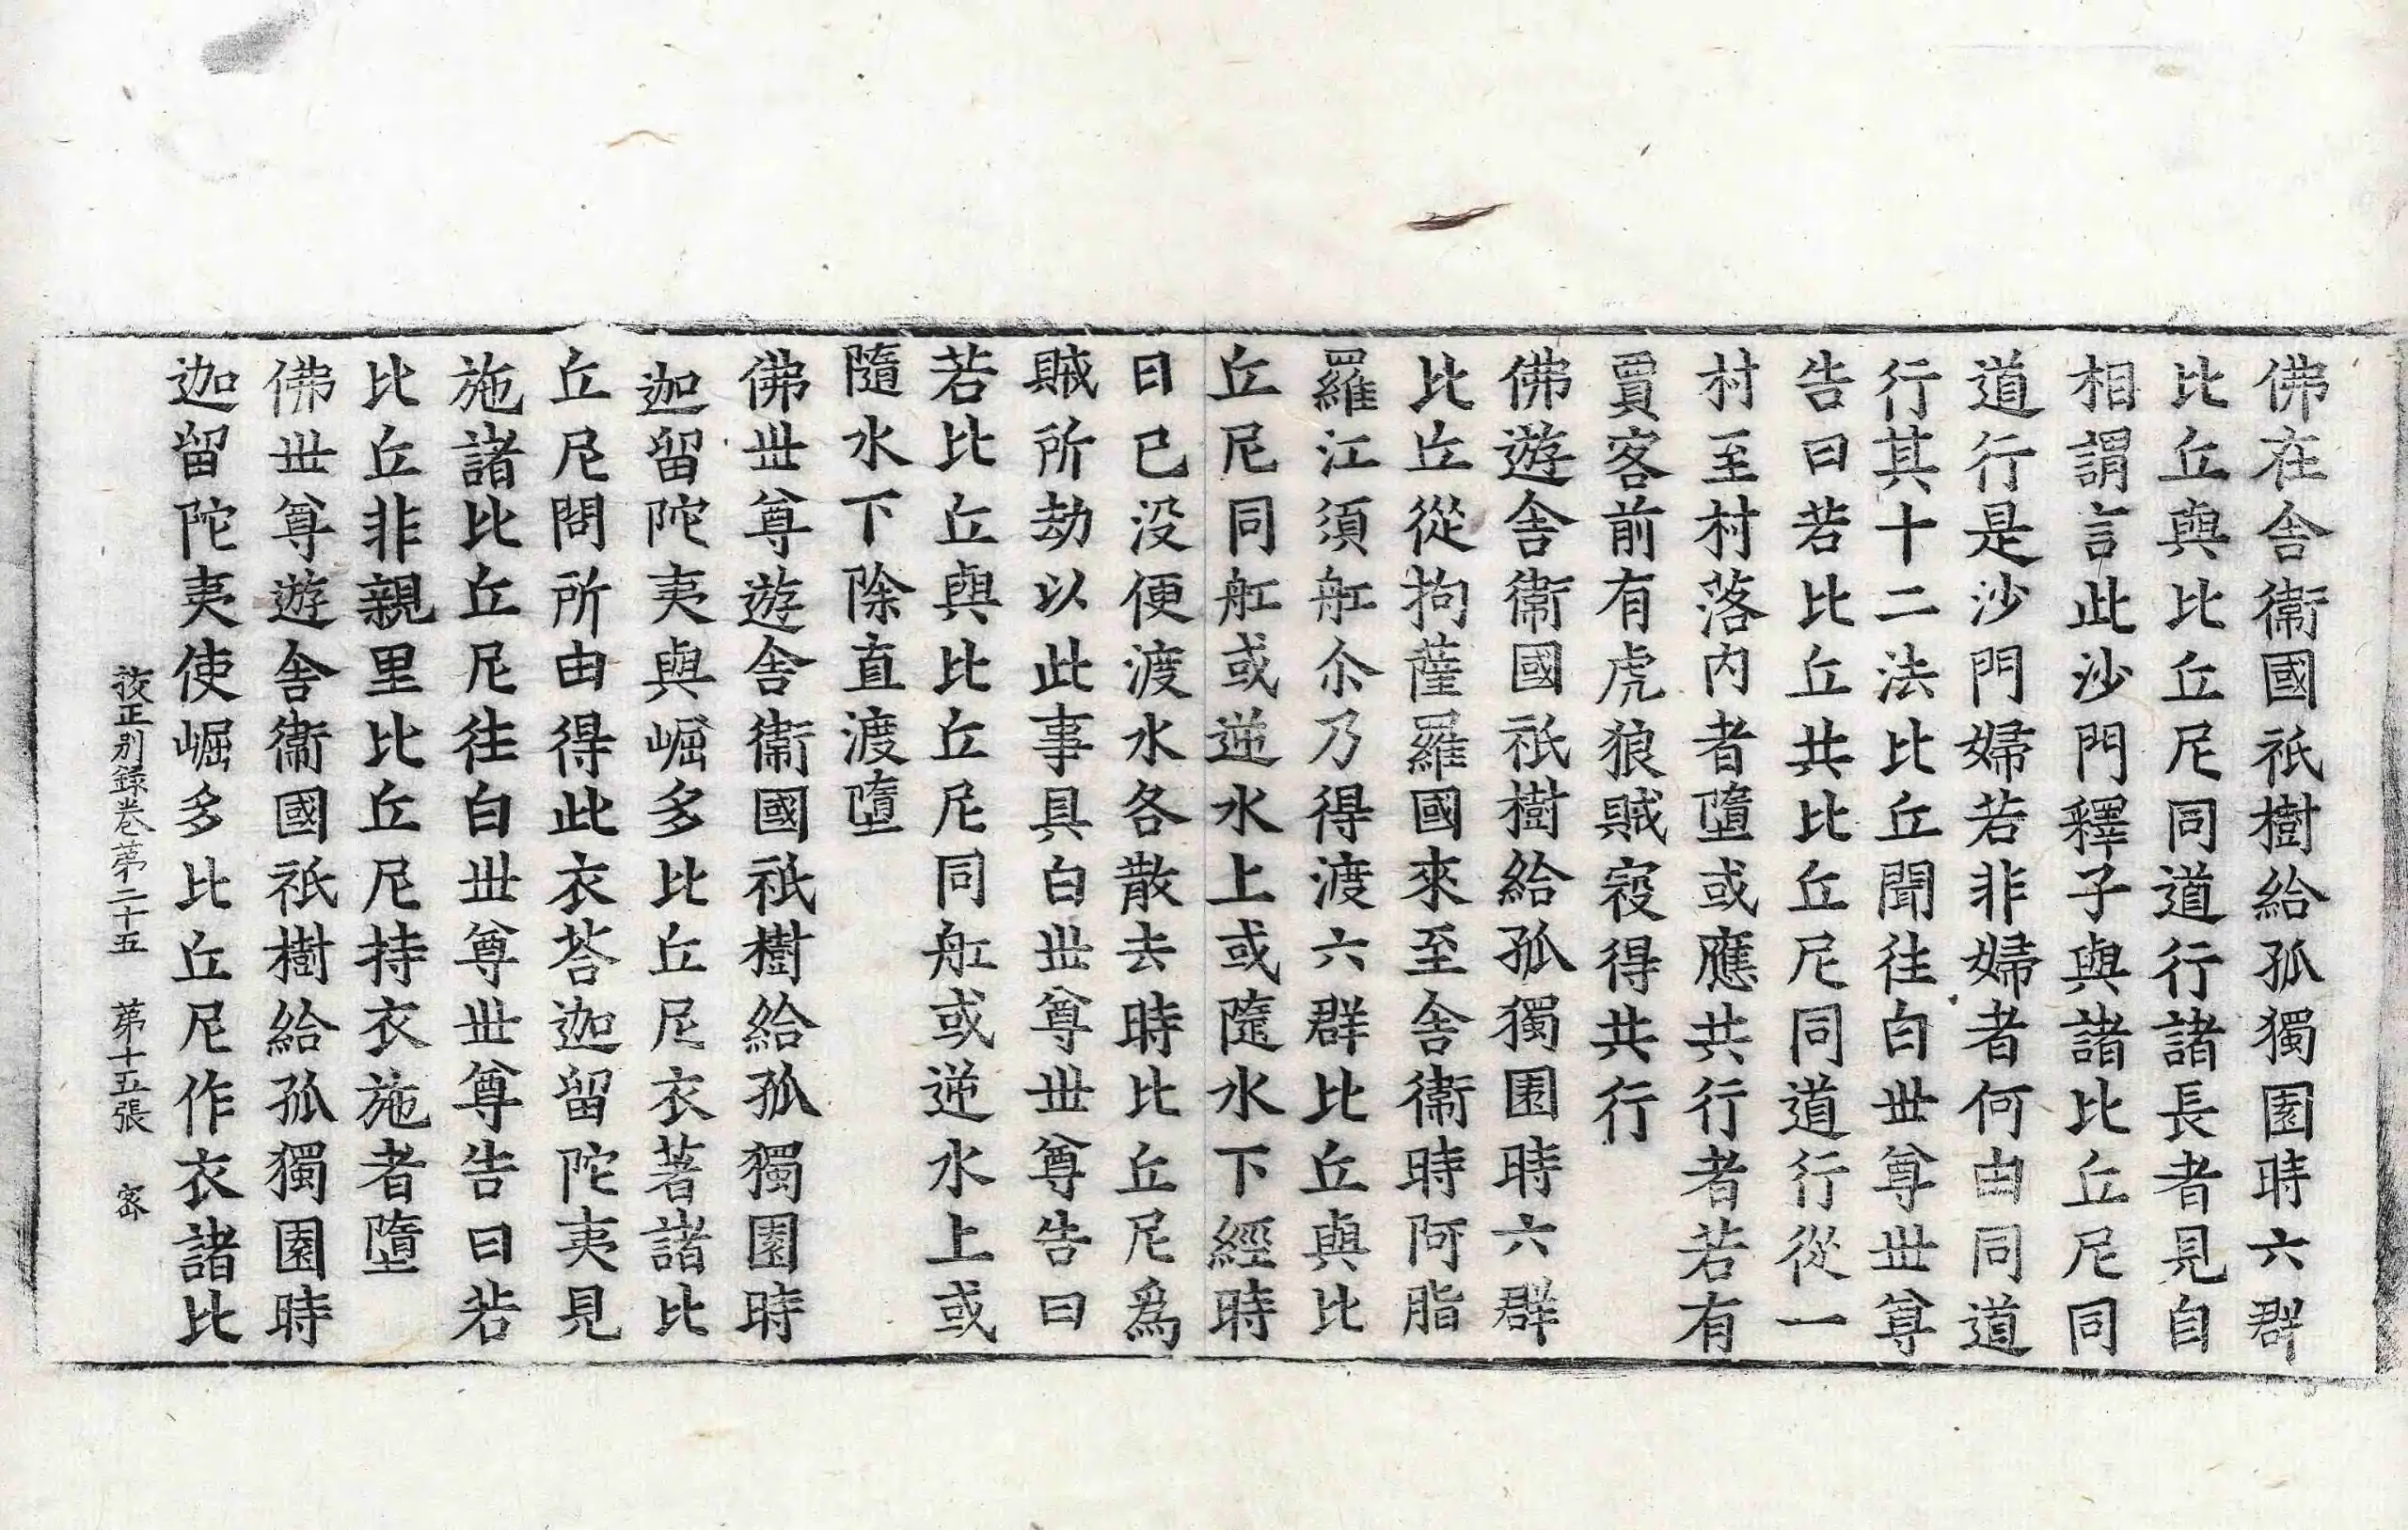 佛在舎衛國祇樹給孤獨園時六群
比丘與比丘尼同道行諸長者見自
相謂言此沙門釋子與諸比丘尼同
道行是沙門婦若非婦者何由同道
行其十二法比丘聞徃白世尊世尊
告曰若比丘共比丘尼同道行從一
村至村落内者墮或應共行者若有
賈客前有虎狼賊㓂得共行
佛遊舎衛國祇樹給孤獨園時六群
比丘從拘薩羅國來至舎衛時阿脂
羅江須舡尒乃得渡六群比丘與比
丘尼同舡或逆水上或隨水下經時
日已没便渡水各散去時比丘尼爲
賊所劫以此事具白世尊世尊告曰
若比丘與比丘尼同舡或逆水上或
隨水下除直渡墮
佛世尊遊舎衛國祇樹給孤獨園時
迦留陀夷與崛多比丘尼衣著諸比
丘尼問所由得此衣荅迦留陀夷見
施諸比丘尼徃白世尊世尊告曰若
比丘非親里比丘尼持衣施者墮
佛世尊遊舎衛國祇樹給孤獨園時
迦留陀夷使崛多比丘尼作衣諸比
挍正別録卷苐二十五　苐十五張　宻